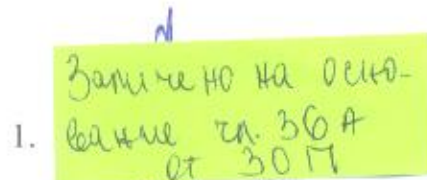 Заличено на осно-
1. вание чл. 36А
от ЗОП